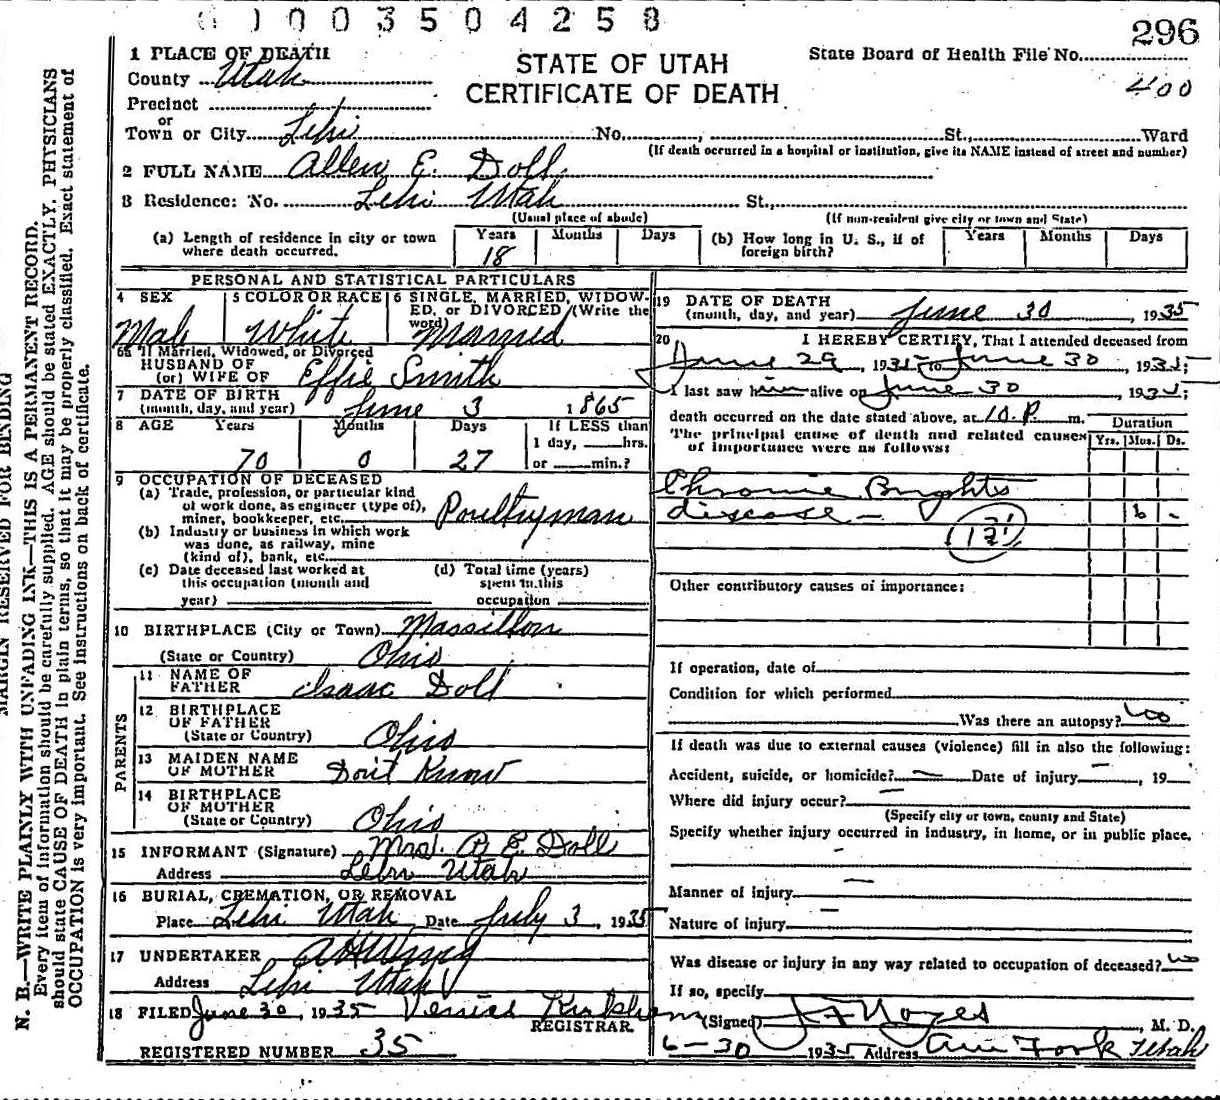 0 0 0 3 5 0 4 2 5 8
296
400
STATE OF UTAH
CERTIFICATE OF DEATH
State Board of Health File No.
MARGIN RESERVED FOR BINDING
N. B.—WRITE PLAINLY WTH UNFADING INK—THIS IS A PERMANENT RECORD.
Every item of information should be carefully supplied. AGE should be stated EXACTLY. PHYSICIANS
should state CAUSE OF DEATH in plain terms, so that it may be properly classified. Exact statement of
OCCUPATION is very important. See instructions on back of certificate.
1 PLACE OF DEATH
County Utah
Precinct
or
Town or City Lehi No. , St., Ward
(If death occurred in a hospital or institution, give its NAME instead of street and number)
2 FULL NAME Allen E. Doll
3 Residence: No. Lehi Utah St.,
(Usual place of abode) (If non-resident give city or town and State)
(a) Length of residence in city or town where death occurred. Years 18 Months Days
(b) How long in U. S., if of foreign birth? Years Months Days
PERSONAL AND STATISTICAL PARTICULARS
4 SEX Male
5 COLOR OR RACE White
6 SINGLE, MARRIED, WIDOWED, or DIVORCED (Write the word) Married
6a If Married, Widowed, or Divorced
HUSBAND OF
(or) WIFE OF Effie Smith
7 DATE OF BIRTH
(month, day, and year) June 3 1865
8 AGE Years 70 Months 0 Days 27
If LESS than
1 day, hrs.
or min.?
9 OCCUPATION OF DECEASED
(a) Trade, profession, or particular kind
of work done, as engineer (type of),
miner, bookkeeper, etc. Poultryman
(b) Industry or business in which work
was done, as railway, mine
(kind of), bank, etc.
(c) Date deceased last worked at
this occupation (month and
year)
(d) Total time (years)
spent in this
occupation
10 BIRTHPLACE (City or Town) Massillon
(State or Country) Ohio
PARENTS
11 NAME OF
FATHER Isaac Doll
12 BIRTHPLACE
OF FATHER
(State or Country) Ohio
13 MAIDEN NAME
OF MOTHER Don't Know
14 BIRTHPLACE
OF MOTHER
(State or Country) Ohio
15 INFORMANT (Signature) Mrs. A E Doll
Address Lehi Utah
16 BURIAL, CREMATION, OR REMOVAL
Place Lehi Utah Date July 3, 1935
17 UNDERTAKER A H Wing
Address Lehi Utah
18 FILED June 30, 1935
REGISTRAR
REGISTERED NUMBER 35
19 DATE OF DEATH
(month, day, and year) June 30, 1935
20 I HEREBY CERTIFY, That I attended deceased from
June 29, 1935 to June 30, 1935;
I last saw him alive on June 30, 1935;
death occurred on the date stated above, at 10.P. m.
The principal cause of death and related causes
of importance were as follows:
Duration
Yrs. Mos. Ds.
Chronic Brights
disease — 6 -
131
Other contributory causes of importance:
If operation, date of
Condition for which performed
Was there an autopsy? no
If death was due to external causes (violence) fill in also the following:
Accident, suicide, or homicide? — Date of injury — , 19
Where did injury occur? —
(Specify city or town, county and State)
Specify whether injury occurred in industry, in home, or in public place.
—
Manner of injury —
Nature of injury —
Was disease or injury in any way related to occupation of deceased? no
If so, specify
(Signed) J F Noyes, M. D.
6-30 1935 Address Am Fork Utah